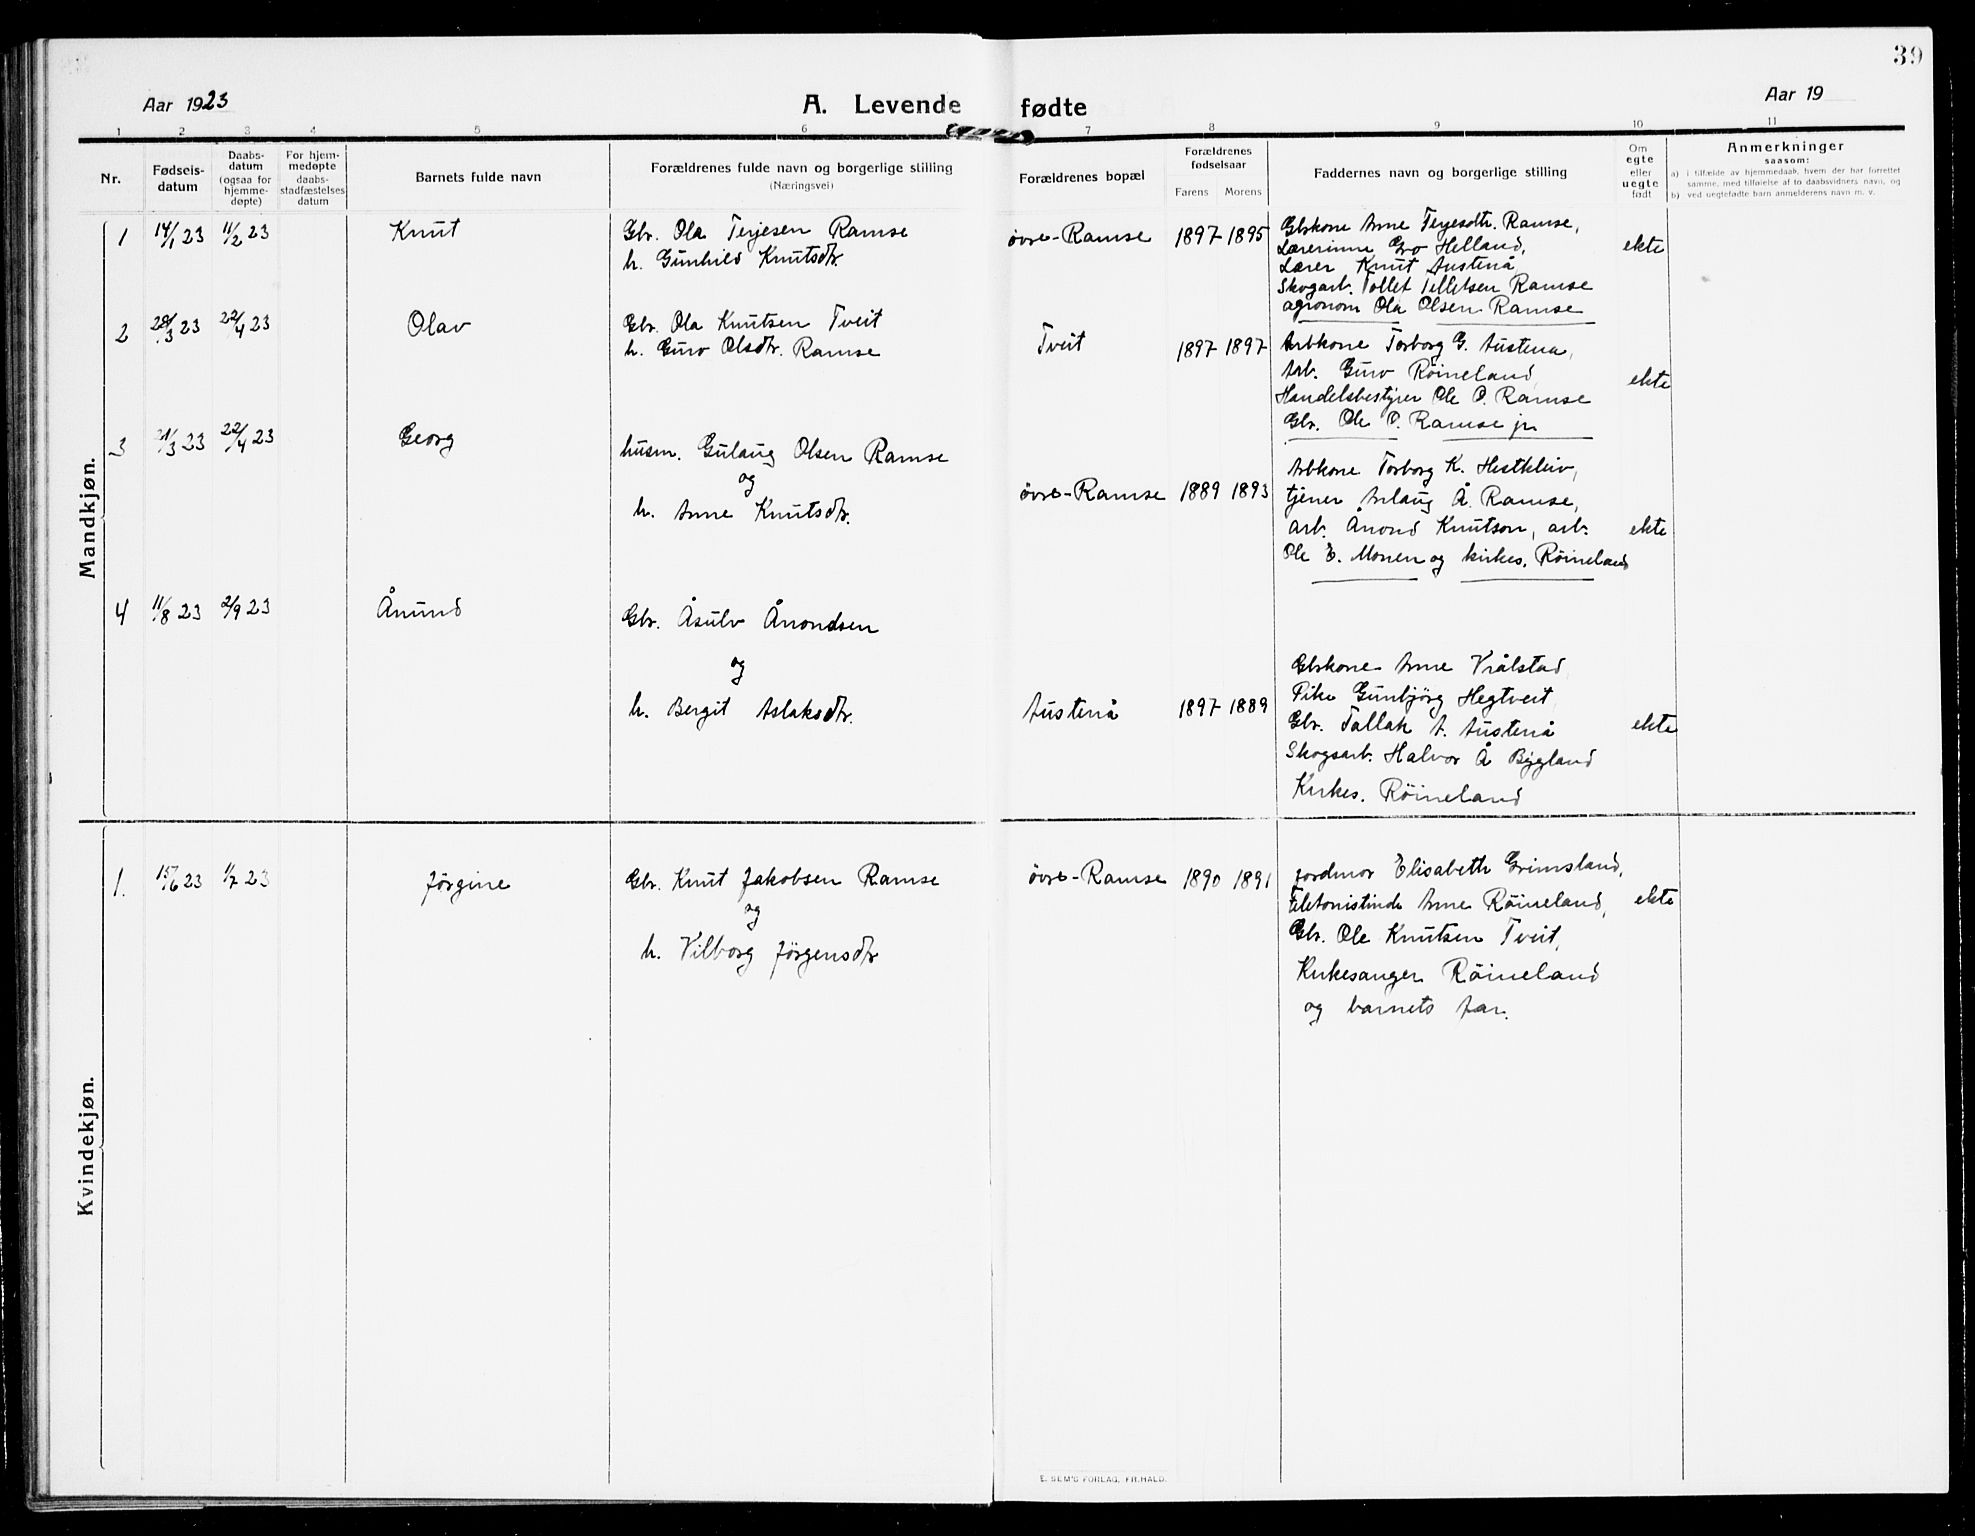 39
Aar 1923
A. Levende fødte
Aar 19
1 2 3 4 5 6 7 8 9 10 11
Nr.
Fødsels-
datum
Daabs-
datum
(ogsaa for
hjemme-
døpte)
For hjem-
medøpte
daabs-
stadfæstelses
datum
Barnets fulde navn
Forældrenes fulde navn og borgerlige stilling
(Næringsvei)
Forældrenes bopæl
Forældrenes
fødselsaar
Farens Morens
Faddernes navn og borgerlige stilling
Om
egte
eller
uegte
født
Anmerkninger
saasom:
a) i tilfælde av hjemmedaab, hvem der har forrettet
samme, med tilføielse af to daabsvidners navn, og
b) ved uegtefødte barn anmelderens navn m. v.
Mandkjøn.
1 14/1 23 11/2 23 Knut
Gbr. Ola Terjesen Ramse
h. Gunhild Knutsdtr.
øvre-Ramse 1897 1895
Gbrkone Anne Terjesdtr. Ramse,
Lærerinne Gro Helland,
Lærer Knut Austenå
Skogarb. Tollet Telletsen Ramse
agronom Ola Olsen Ramse
ekte
2 28/3 23 22/4 23 Olav
Gbr. Ola Knutsen Tveit
h. Guro Olsdtr. Ramse
Tveit 1897 1897
Arbkone Torborg G. Austenå,
Arb. Guro Röineland,
Handelsbestyrer Ole O. Ramse
Gbr. Ole O. Ramse jr.
ekte
3 21/3 23 22/4 23 Georg
husm. Gulaug Olsen Ramse
og
h. Anne Knutsdtr.
øvre-Ramse 1889 1893
Arbkone Torborg K. Hestkleiv,
tjener Arlaug Å. Ramse,
arb. Ånond Knutson, arb.
Ole E. Monen og kirkes. Röineland
ekte
4 11/8 23 2/9 23 Ånund
Gbr. Åsulv Ånondsen
og
h. Bergit Aslaksdtr.
Austenå 1897 1889
Gbrkone Anne Vrålstad
Pike Gunbjörg Hegtveit
Gbr. Tallak A. Austenå
Skogsarb. Halvor Å Bygland
Kirkes. Röineland
ekte
Kvindekjøn.
1. 15/6 23 1/7 23 Jørgine
Gbr. Knut Jakobsen Ramse
og
h. Vilborg Jørgensdtr
øvre-Ramse 1890 1891
jordmor Elisabeth Grimsland,
Telefonistinde Anne Röineland,
Gbr. Ole Knutsen Tveit,
Kirkesanger Röineland
og barnets far.
ekte
E. SEM'S FORLAG, FR.HALD.